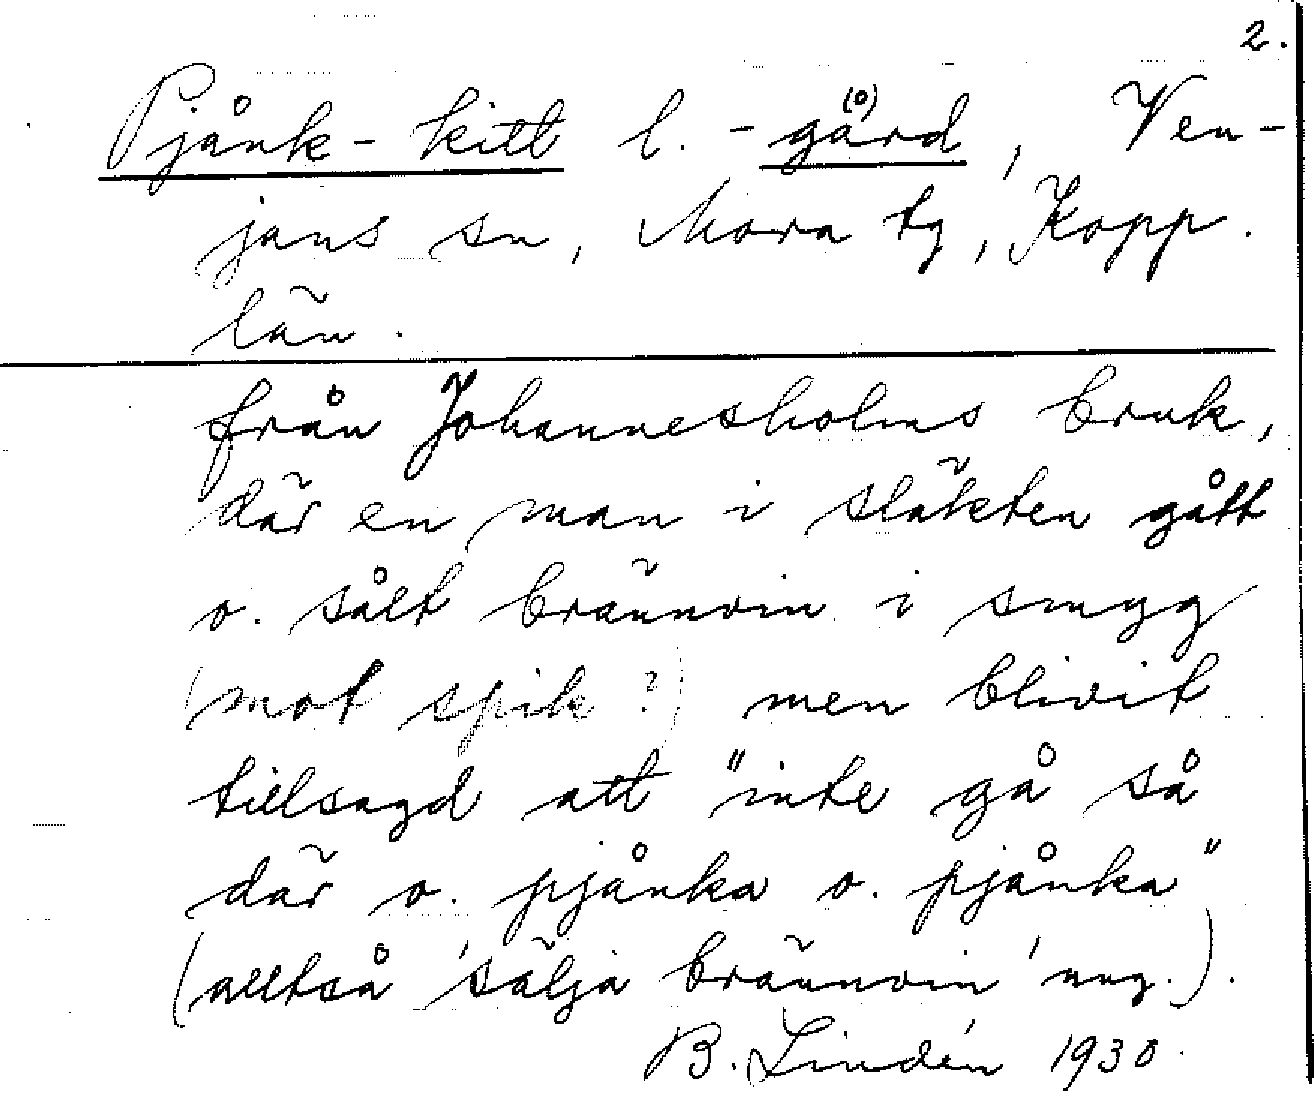 2.
Pjånk-kitt l. -gård, Ven-
(o)
jans sn, Mora tg, Kopp.
län.
från Johannesholms bruk,
där en man i släkten gått
o. sålt brännvin i smyg
(mot spik?) men blivit
tillsagd att "inte gå så
där o. pjånka o. pjånka"
(alltså 'sälja brännvin' ung.).
B. Lindén 1930.